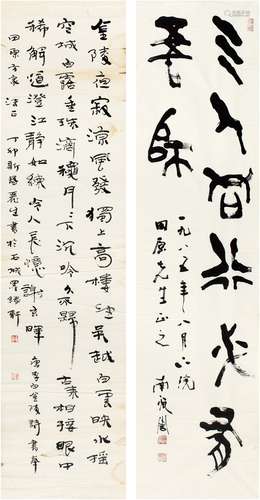 三人同行必有
吾師
一九八五年八月六院
田原先生正之
金陵夜寂涼風發獨上高樓望吳越白雲映水搖
空城白露垂珠滴秋月々下沉吟久不歸古來相接眼中
稀解道澄江靜如練令人長憶謝玄暉 唐李白金陵詩書奉
田原方家法正 丁卯新春 生書於石城 軒